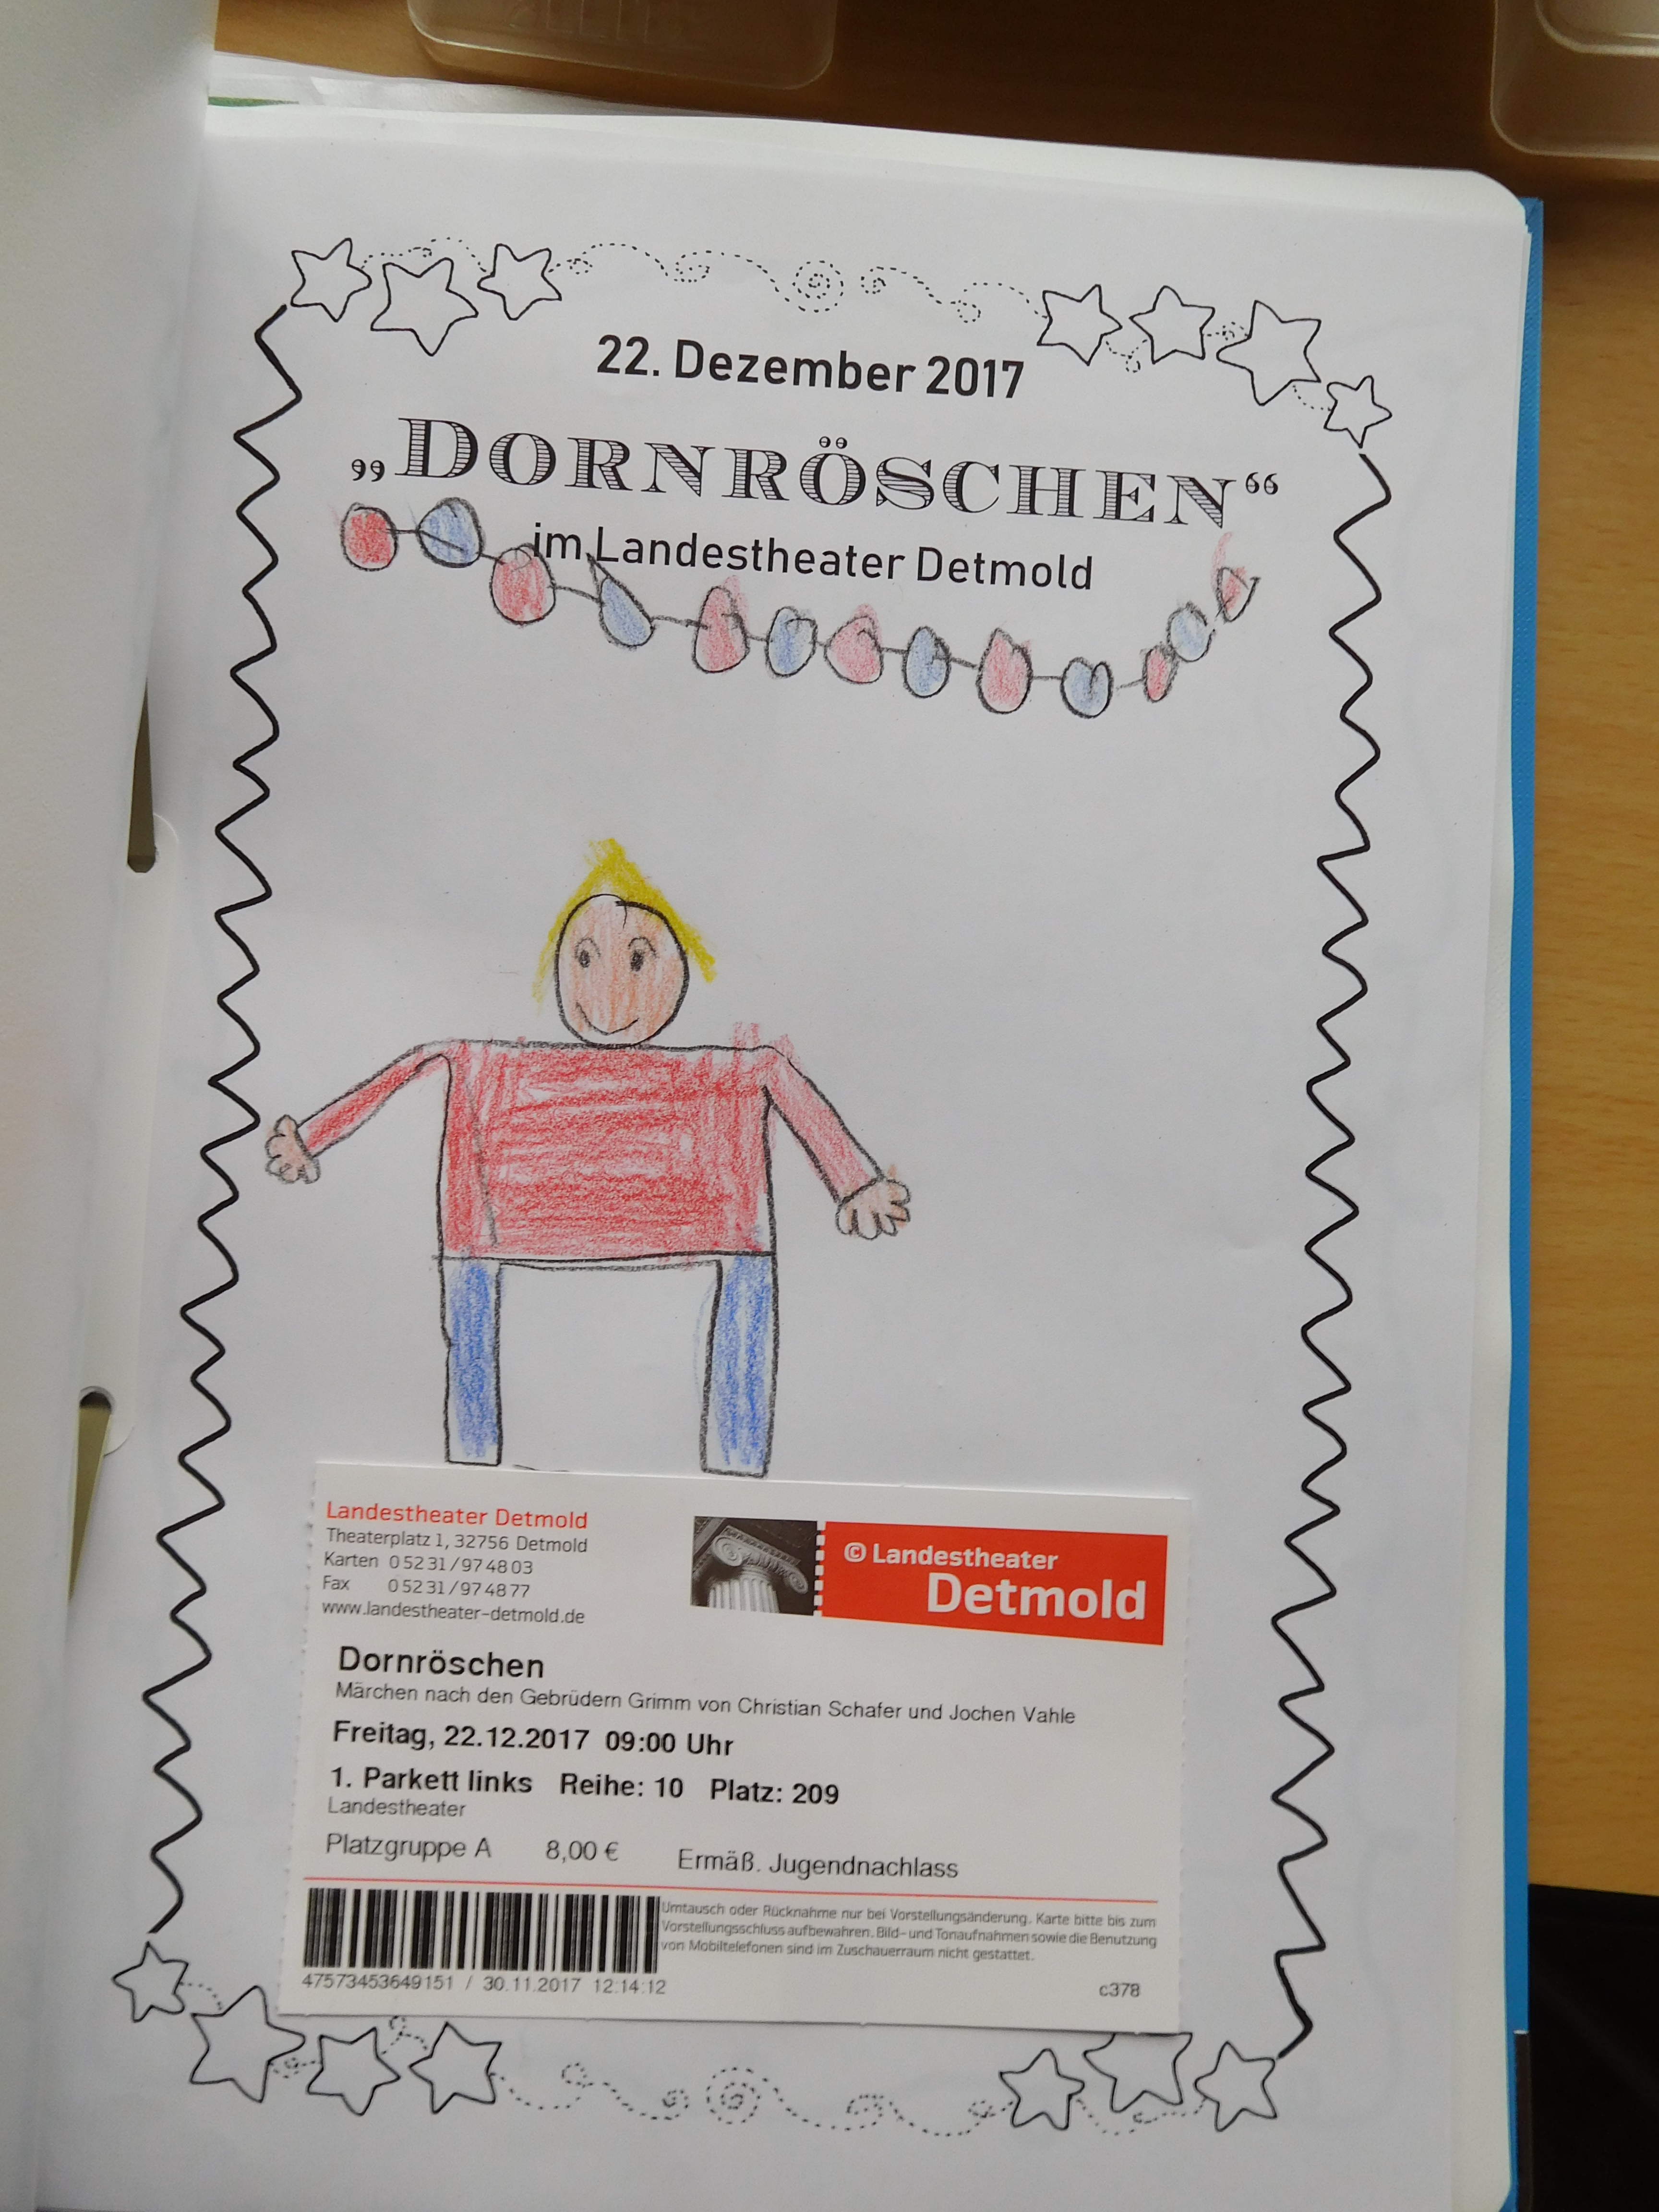 22. Dezember 2017
„DORNRÖSCHEN“
im Landestheater Detmold
Landestheater Detmold
Theaterplatz 1, 32756 Detmold
Karten 0 52 31 / 97 48 03
Fax 0 52 31 / 97 48 77
www.landestheater-detmold.de
© Landestheater
Detmold
Dornröschen
Märchen nach den Gebrüdern Grimm von Christian Schafer und Jochen Vahle
Freitag, 22.12.2017 09:00 Uhr
1. Parkett links Reihe: 10 Platz: 209
Landestheater
Platzgruppe A 8,00 € Ermäß. Jugendnachlass
Umtausch oder Rücknahme nur bei Vorstellungsänderung. Karte bitte bis zum
Vorstellungsschluss aufbewahren. Bild- und Tonaufnahmen sowie die Benutzung
von Mobiltelefonen sind im Zuschauerraum nicht gestattet.
47573453649151 / 30.11.2017 12:14:12
c378